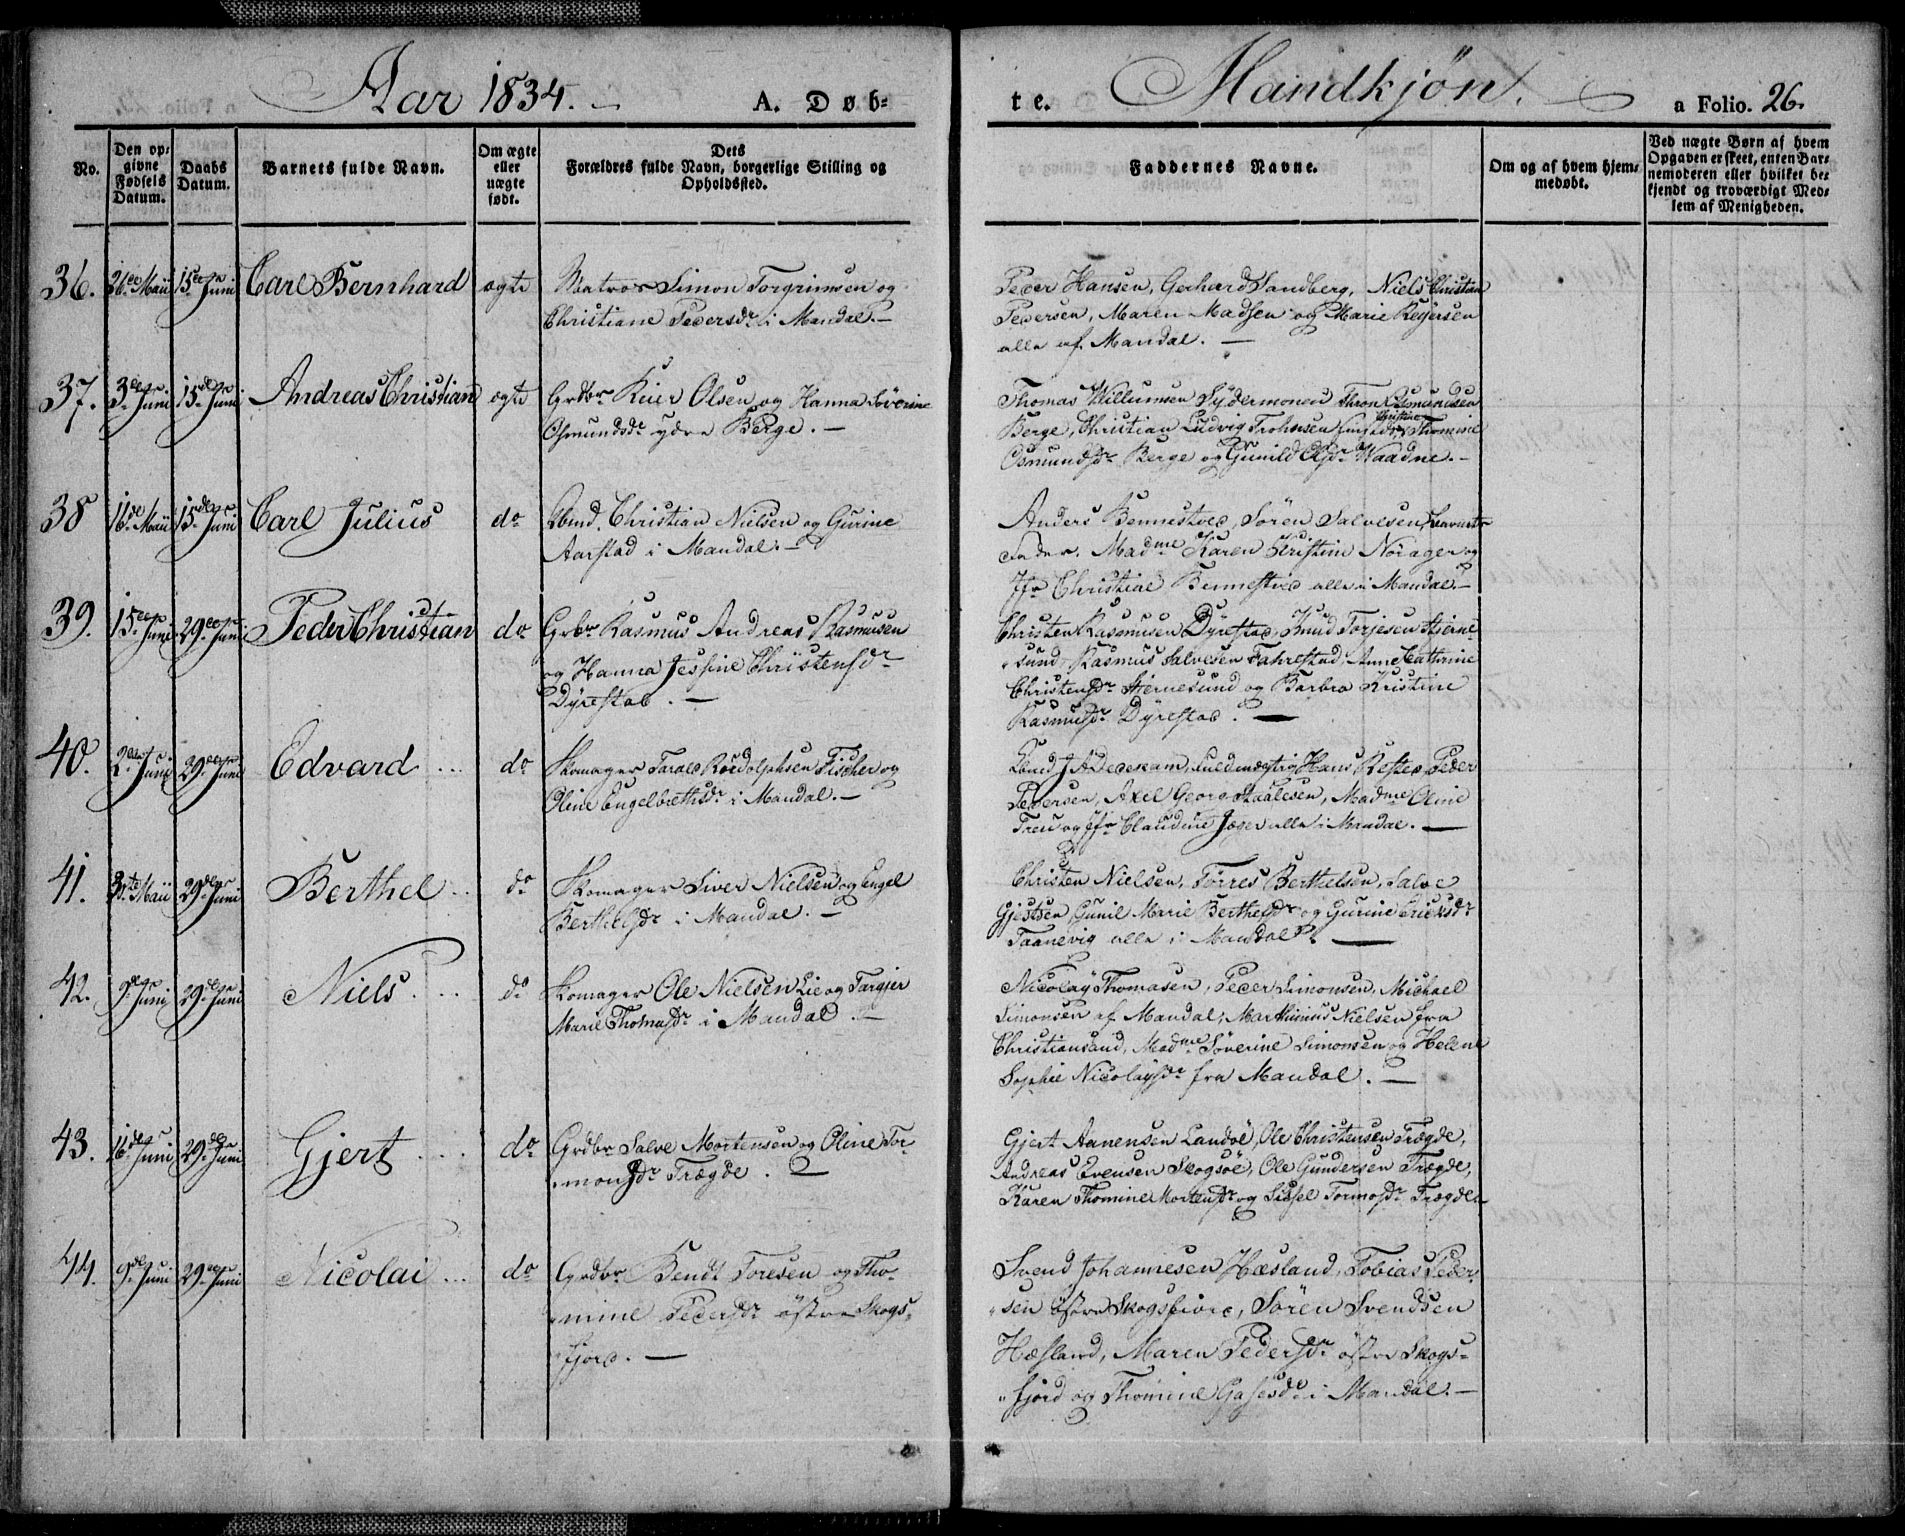 Aar 1834. A. Døb-
te. Mandkjøn. a Folio. 26.
No. Den opgivne Fødsels Datum. Daabs Datum. Barnets fulde Navn. Om ægte eller uægte født. Forældres fulde Navn, borgerlige Stilling og Opholdssted.
Faddernes Navne. Om og af hvem hjemmedøbt. Ved uægte Børn af hvem Opgaven er skeet, enten Barnemoderen eller hvilket bekjendt og troværdigt Medlem af Menigheden.
36. 26de Maii 15de Juni Carl Bernhard ægte Matros Simon Torgrimsen og
Christiane Pedersdr i Mandal. —
Peder Hansen, Gerhard Sandberg, Niels Christian
Pedersen, Maren Madsen og Marie Reyersen
alle af Mandal. —
37. 3de Juni 15de Juni Andreas Christian ægte Grdbr Reier Olsen og Hanna Sövrine
Osmundsdr ydre Berge. —
Thomas Willumsen Sÿdermonen Thron Osmundsen
Berge, Christian Ludvig Trohnsen Christine Thomine
Osmundsdr Berge og Gunild Olsdr Waadne. —
38 16de Maii 15de Juni Carl Julius do Christian Nielsen og Gurine
Aarstad i Mandal. —
Anders Bennestved, Sören Salvesen, Barnets
Fader, Madme Karen Kristine Norager og
Jfr Christine Bennestved alle i Mandal. —
39. 15de Juni 29de Juni Peder Christian do Grbr Rasmus Andreas Rasmusen
og Hanna Jessine Christensdr
Dÿrestad. —
Christen Rasmusen Dÿrestad, Knud Torjesen Stjerne-
sund, Rasmus Salvesen Fahrestad, Anne Cathrine
Christensdr Stjernesund og Barbro Kristine
Rasmusdr Dÿrestad. —
40. 2den Juni 29de Juni Edvard ... do Skomager Tarald Rordolphsen Fischer og
Oline Engelbrethsdr i Mandal. —
Hans Rested, Peder
Pedersen, Axel Georg Staalesen, Madme Oline
Treu og Jfr Claudine Jæger alle i Mandal. —
41. 30te Maii 29de Juni Berthel .. do Skomager Siver Nielsen og Engel
Berthelsdr i Mandal. —
Christen Nielsen, Törres Berthelsen, Salve
Gjertsen, Gunil Marie Berthelsdr og Gurine Ericksdr
Taanevig alle i Mandal. —
42. 9de Juni 29de Juni Niels. ... do Skomager Ole Nielsen Lie og Targjer
Marie Thomasdr i Mandal. —
Nicolaÿ Thomasen, Peder Simonsen, Michael
Simonsen af Mandal, Marthinus Nielsen fra
Christiansand, Madme Söverine Simonsen og Helene
Sophie Nicolaysdr fra Mandal. —
43. 16de Juni 29de Juni Gjert .... do Grdbr Salve Mortensen og Oline Tor-
mosdr Trægde. —
Gjert Aanensen Landöe, Ole Christensen Trægde,
Andreas Evensen Skogsöe, Ole Gundersen Trægde,
Karen Thomine Mortensdr og Sissel Tormosdr Trægde
44. 9de Juni 29de Juni Nicolai ... do Grdbr Bendt Toresen og Tho-
mine Pedersdr östre Skogs-
fjord. —
Svend Johannesen Hæsland, Tobias Peder-
sen östre Skogsfjord, Sören Svendsen
Hæsland, Maren Pedersdr östre Skogs-
fjord og Thomine i Mandal. —